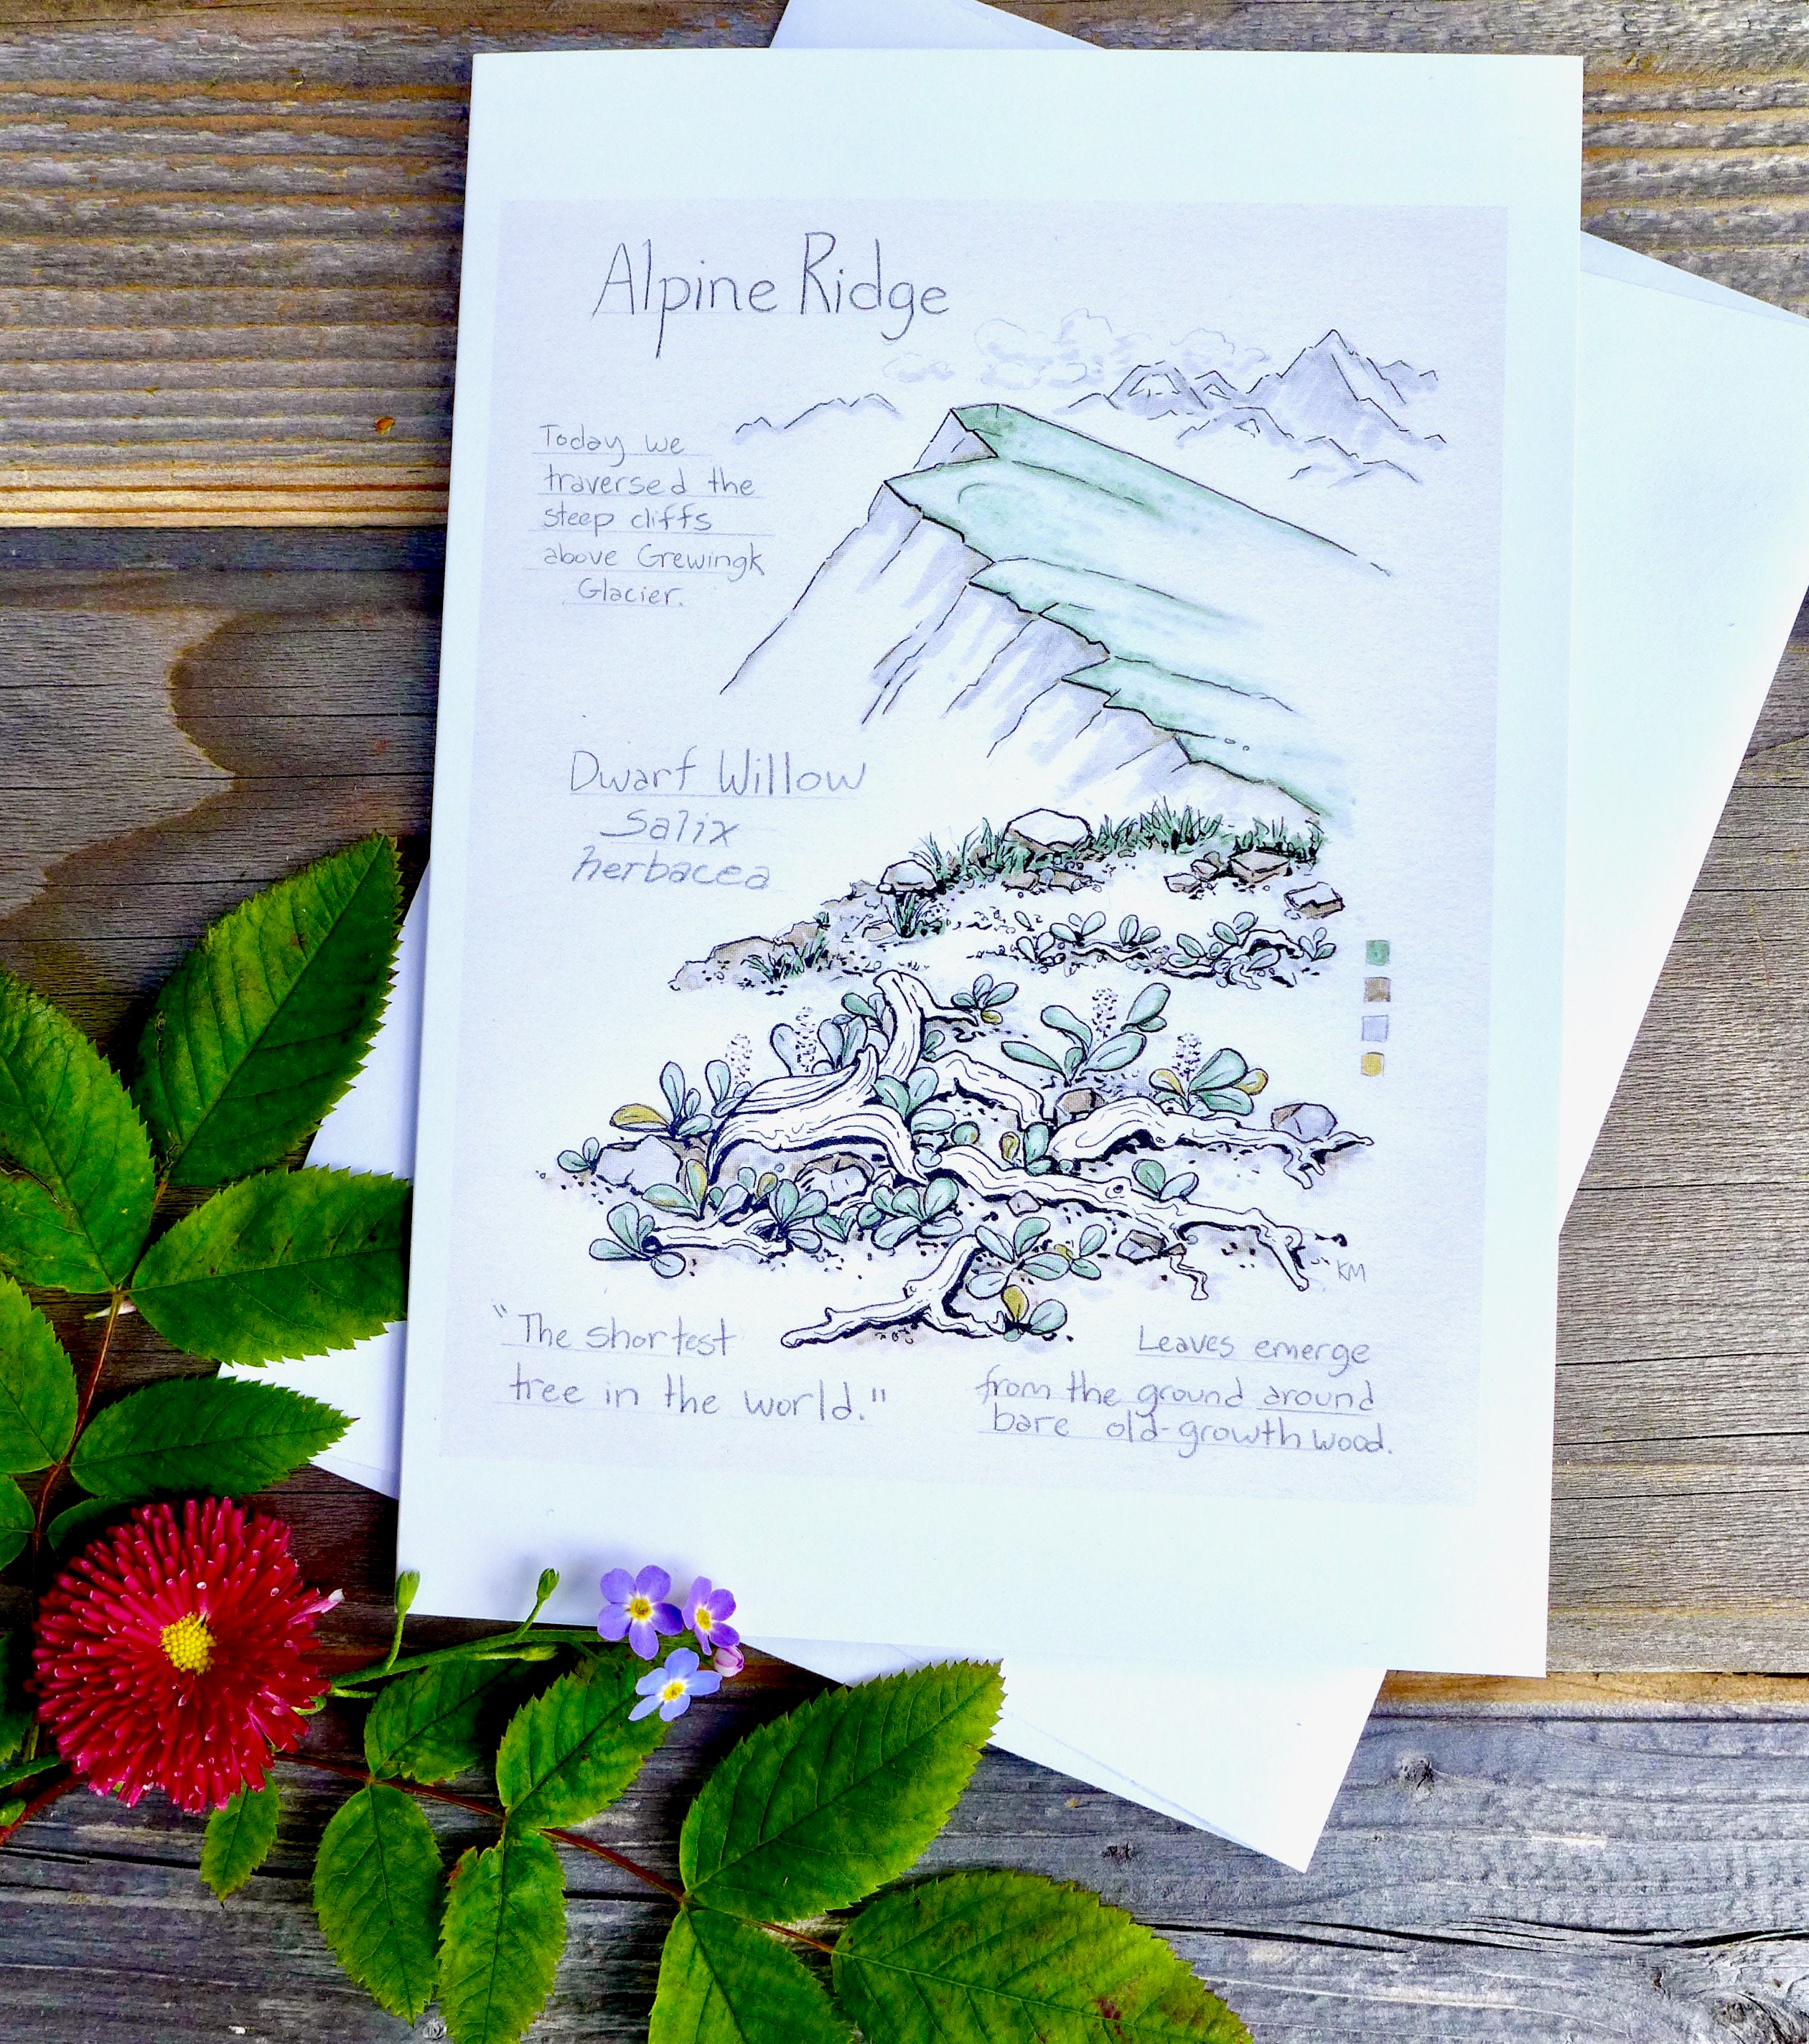 Alpine Ridge
Today we
traversed the
steep cliffs
above Grewingk
Glacier.
Dwarf Willow
Salix
herbacea
KM
"The shortest
tree in the world."
Leaves emerge
from the ground around
bare old-growth wood.